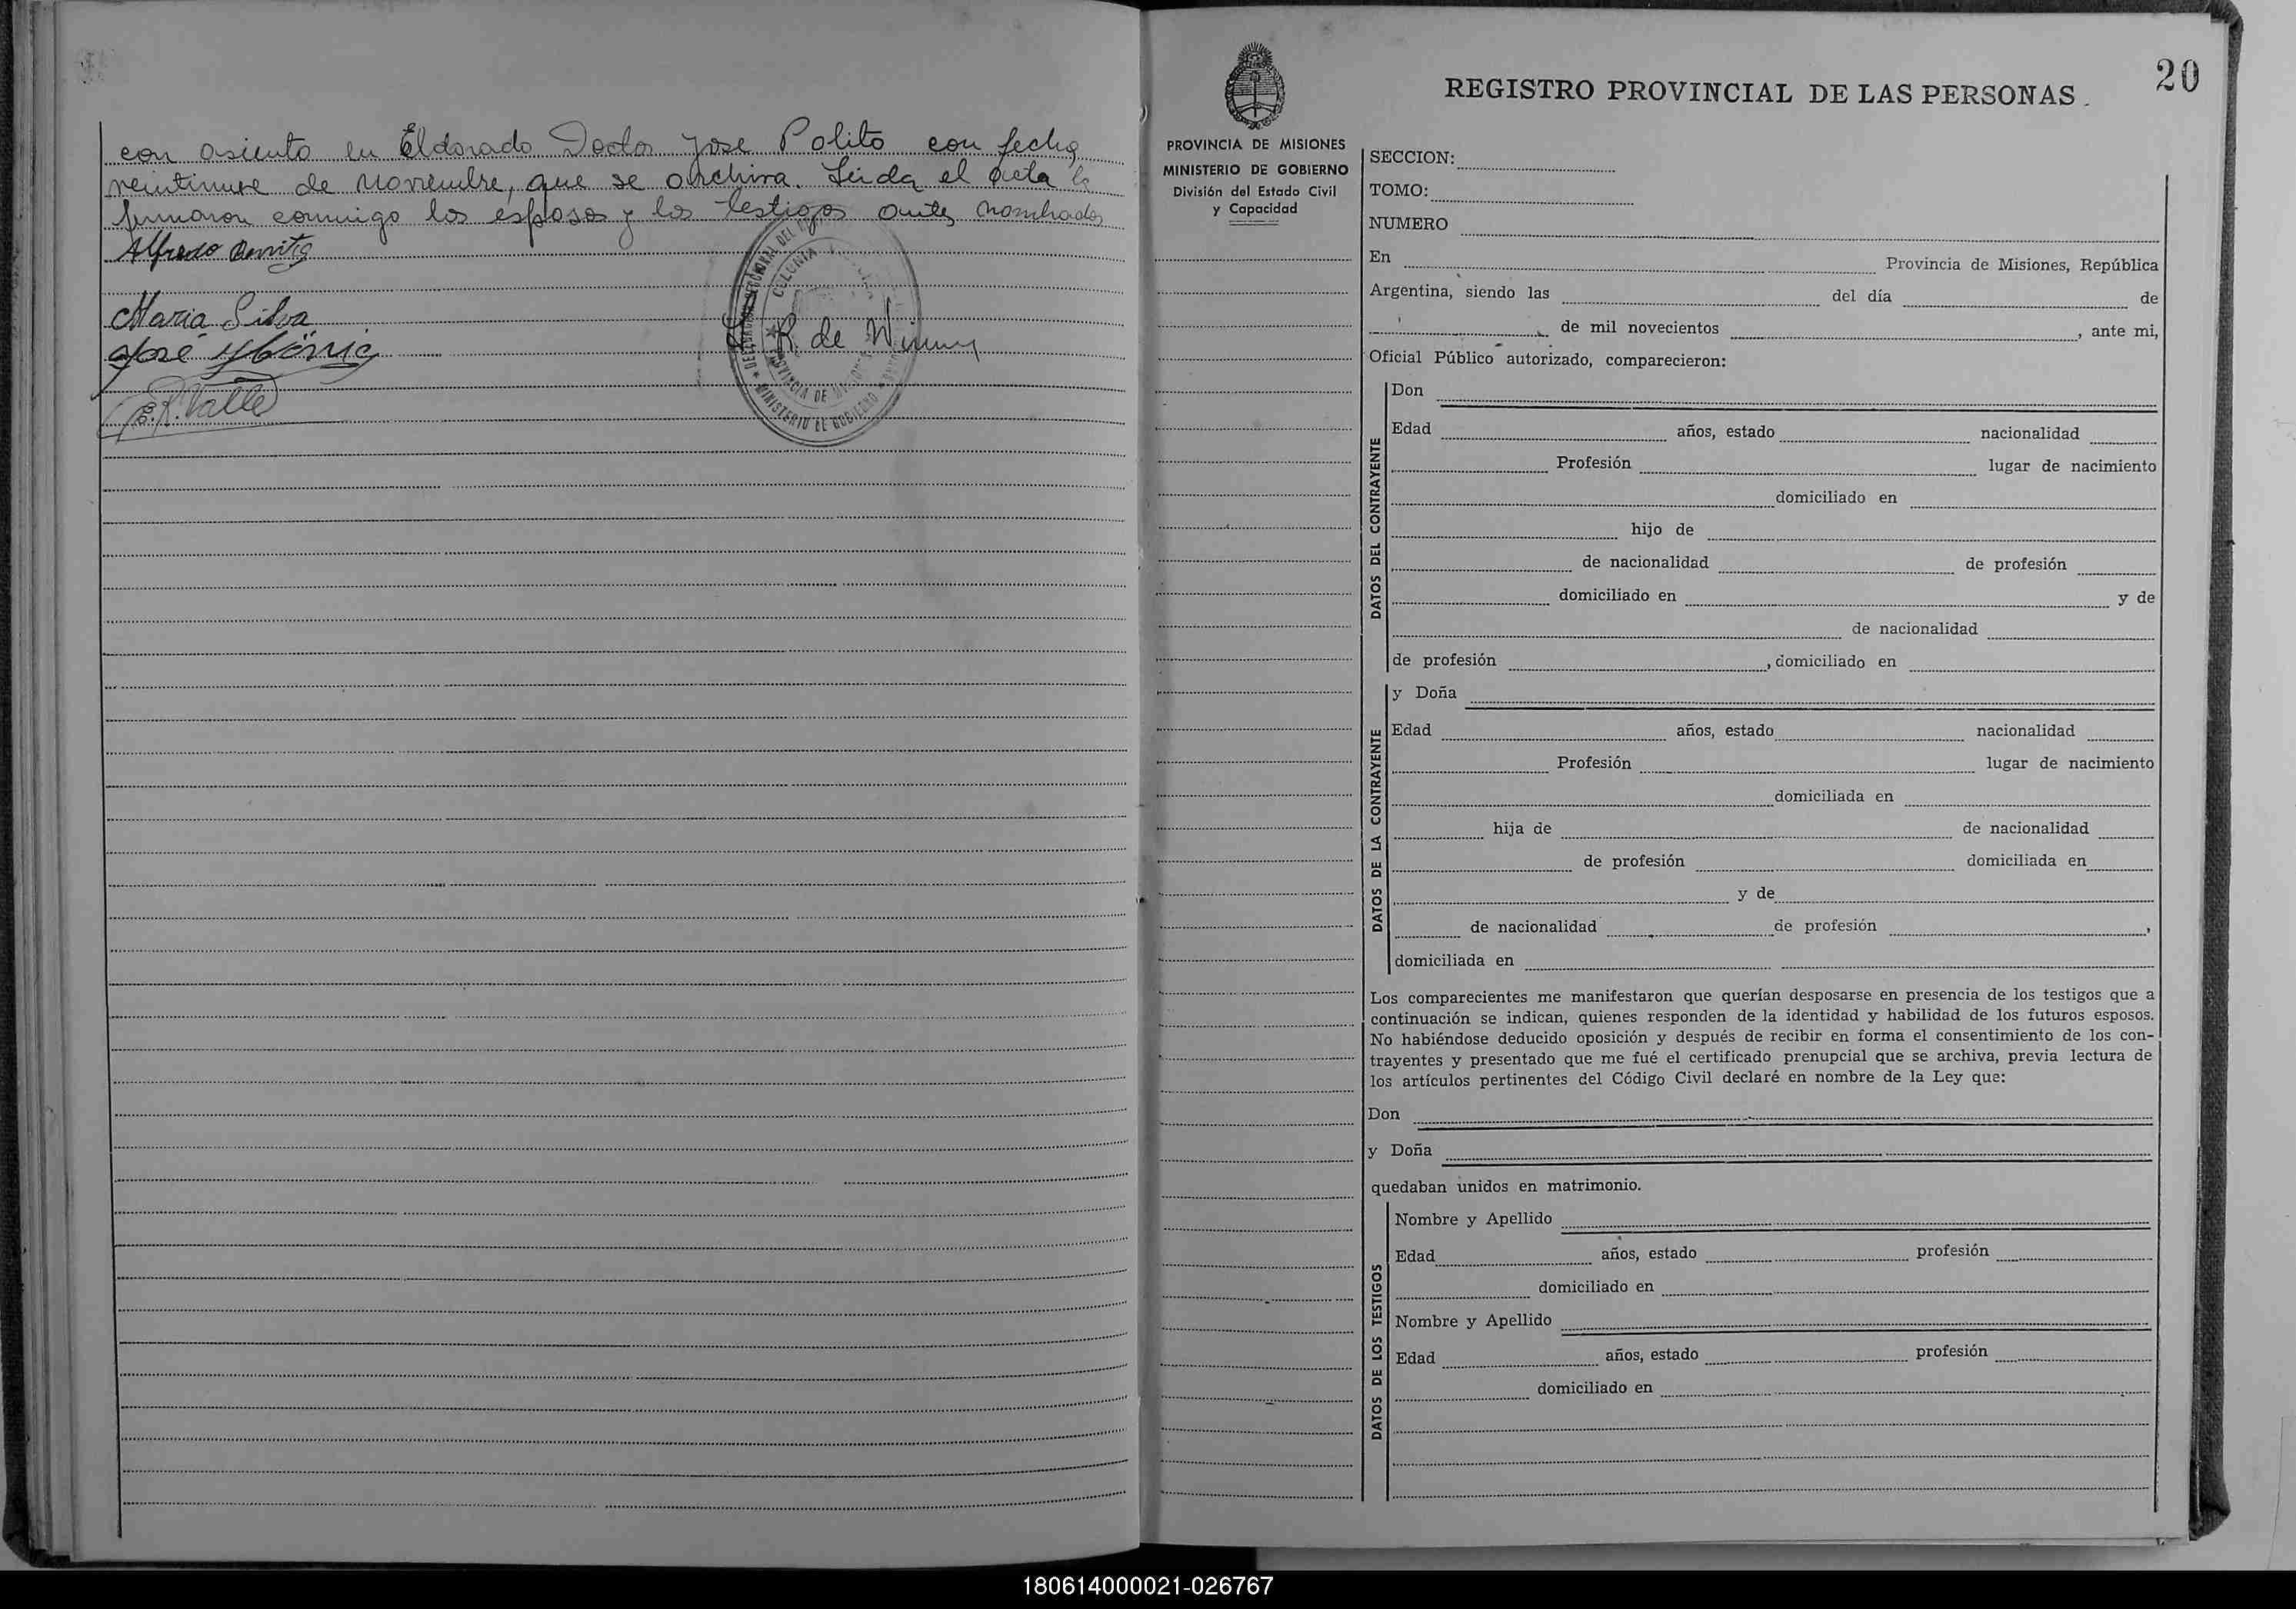 con asiento en Eldorado Doctor Jose Polito con fecha
veintinueve de Noviembre, que se archiva. Leida el Acta la
firmaron conmigo los esposos y los testigos antes nombrados
Alfredo
Maria Silva
José
R. de
E.R. Valle
COLONIA
PROVINCIA DE MISIONES
MINISTERIO DE GOBIERNO
20
REGISTRO PROVINCIAL DE LAS PERSONAS
PROVINCIA DE MISIONES
MINISTERIO DE GOBIERNO
División del Estado Civil
y Capacidad
SECCION:
TOMO:
NUMERO
En Provincia de Misiones, República
Argentina, siendo las del día de
de mil novecientos , ante mi,
Oficial Público autorizado, comparecieron:
DATOS DEL CONTRAYENTE
Don
Edad años, estado nacionalidad
Profesión lugar de nacimiento
domiciliado en
hijo de
de nacionalidad de profesión
domiciliado en y de
de nacionalidad
de profesión , domiciliado en
DATOS DE LA CONTRAYENTE
y Doña
Edad años, estado nacionalidad
Profesión lugar de nacimiento
domiciliada en
hija de de nacionalidad
de profesión domiciliada en
y de
de nacionalidad de profesión ,
domiciliada en
Los comparecientes me manifestaron que querían desposarse en presencia de los testigos que a
continuación se indican, quienes responden de la identidad y habilidad de los futuros esposos.
No habiéndose deducido oposición y después de recibir en forma el consentimiento de los con-
trayentes y presentado que me fué el certificado prenupcial que se archiva, previa lectura de
los artículos pertinentes del Código Civil declaré en nombre de la Ley que:
Don
y Doña
quedaban unidos en matrimonio.
DATOS DE LOS TESTIGOS
Nombre y Apellido
Edad años, estado profesión
domiciliado en
Nombre y Apellido
Edad años, estado profesión
domiciliado en
180614000021-026767